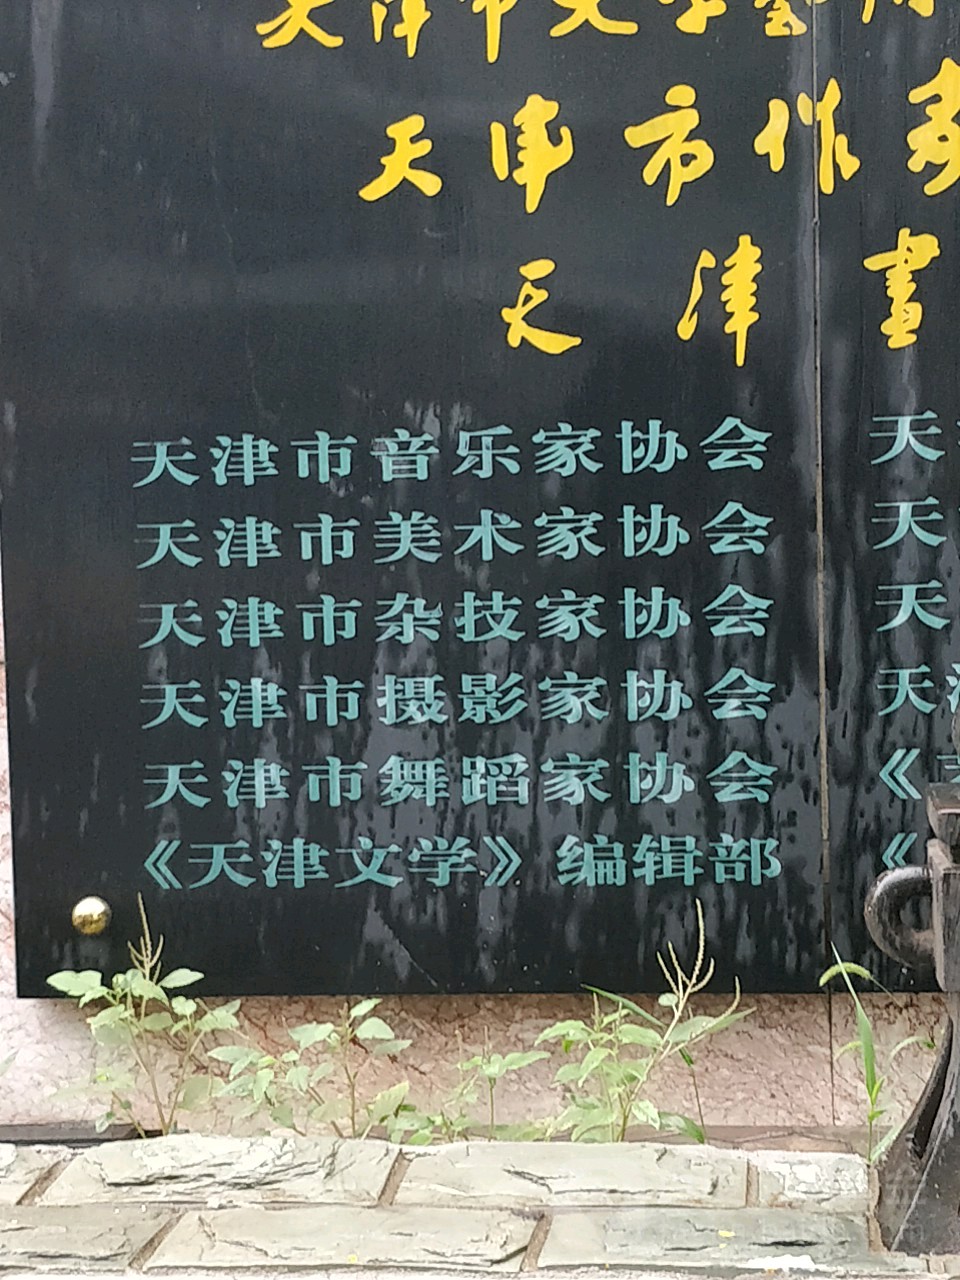 天津市文学艺
天津市作家
天津畫
天津市音乐家协会 天
天津市美术家协会 天
天津市杂技家协会 天
天津市摄影家协会 天津
天津市舞蹈家协会 《
《天津文学》编辑部 《